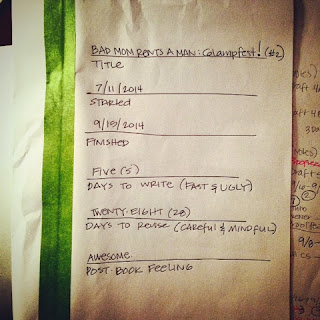 BAD MOM RENTS A MAN: Golampfest! (#2)
TITLE
7/11/2014
STARTED
9/18/2014
FINISHED
FIVE (5)
DAYS TO WRITE (FAST & UGLY)
TWENTY-EIGHT (28)
DAYS TO REVISE (CAREFUL & MINDFUL)
AWESOME.
POST-BOOK FEELING